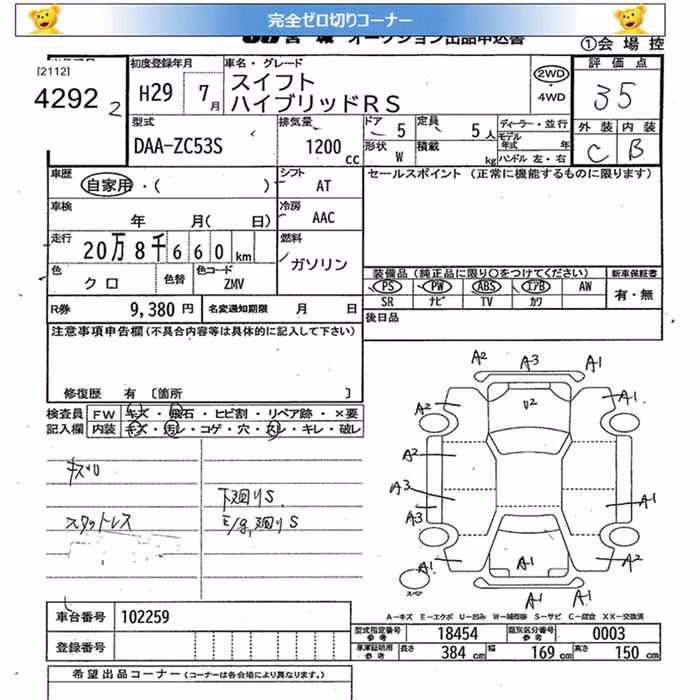 完全ゼロ切りコーナー
JU 宮城 オークション出品申込書 ①会場控
[2112]
4292 2
初度登録年月 車名・グレード 評価点
H29 7月 スイフト
ハイブリッドRS
2WD ・ 4WD
35
型式 排気量 ドア 5 定員 5人 ディーラー・並行
DAA-ZC53S 1200 cc 形状 W 積載 kg モデル年式 年 ハンドル 左・右
外装 内装
C B
車歴 自家用・( ) シフト AT セールスポイント (正常に機能するものに限ります)
車検 年 月( 日) 冷房 AAC
走行 20万8千660km 燃料 ガソリン
色 クロ 色替 色コード ZMV
装備品(純正品に限り○をつけてください) 新車保証書
PS PW ABS エアB AW 有・無
SR ナビ TV カワ
R券 9,380円 名変通知期限 月 日 後日品
注意事項申告欄(不具合内容等は具体的に記入して下さい)
修復歴 有 〔箇所 〕
検査員 FW キズ・飛石・ヒビ割・リペア跡・×要
記入欄 内装 キズ・汚レ・コゲ・穴・スレ・キレ・破レ
キズ小
スタットレス
下廻りS
E/g,廻りS
A2 A3 A1
A2 U2 A1
A2
A3
A3 A1
A1 A1 A2
A1 A1
スペア
A-キズ E-エクボ U-凹み W-補修跡 S-サビ C-腐食 XX-交換済
車台番号 102259
登録番号
型式指定番号 参考 18454 類別区分番号 参考 0003
車庫証明用 参考 長さ 384 cm 幅 169 cm 高さ 150 cm
希望出品コーナー (コーナーは各会場により異なります。)